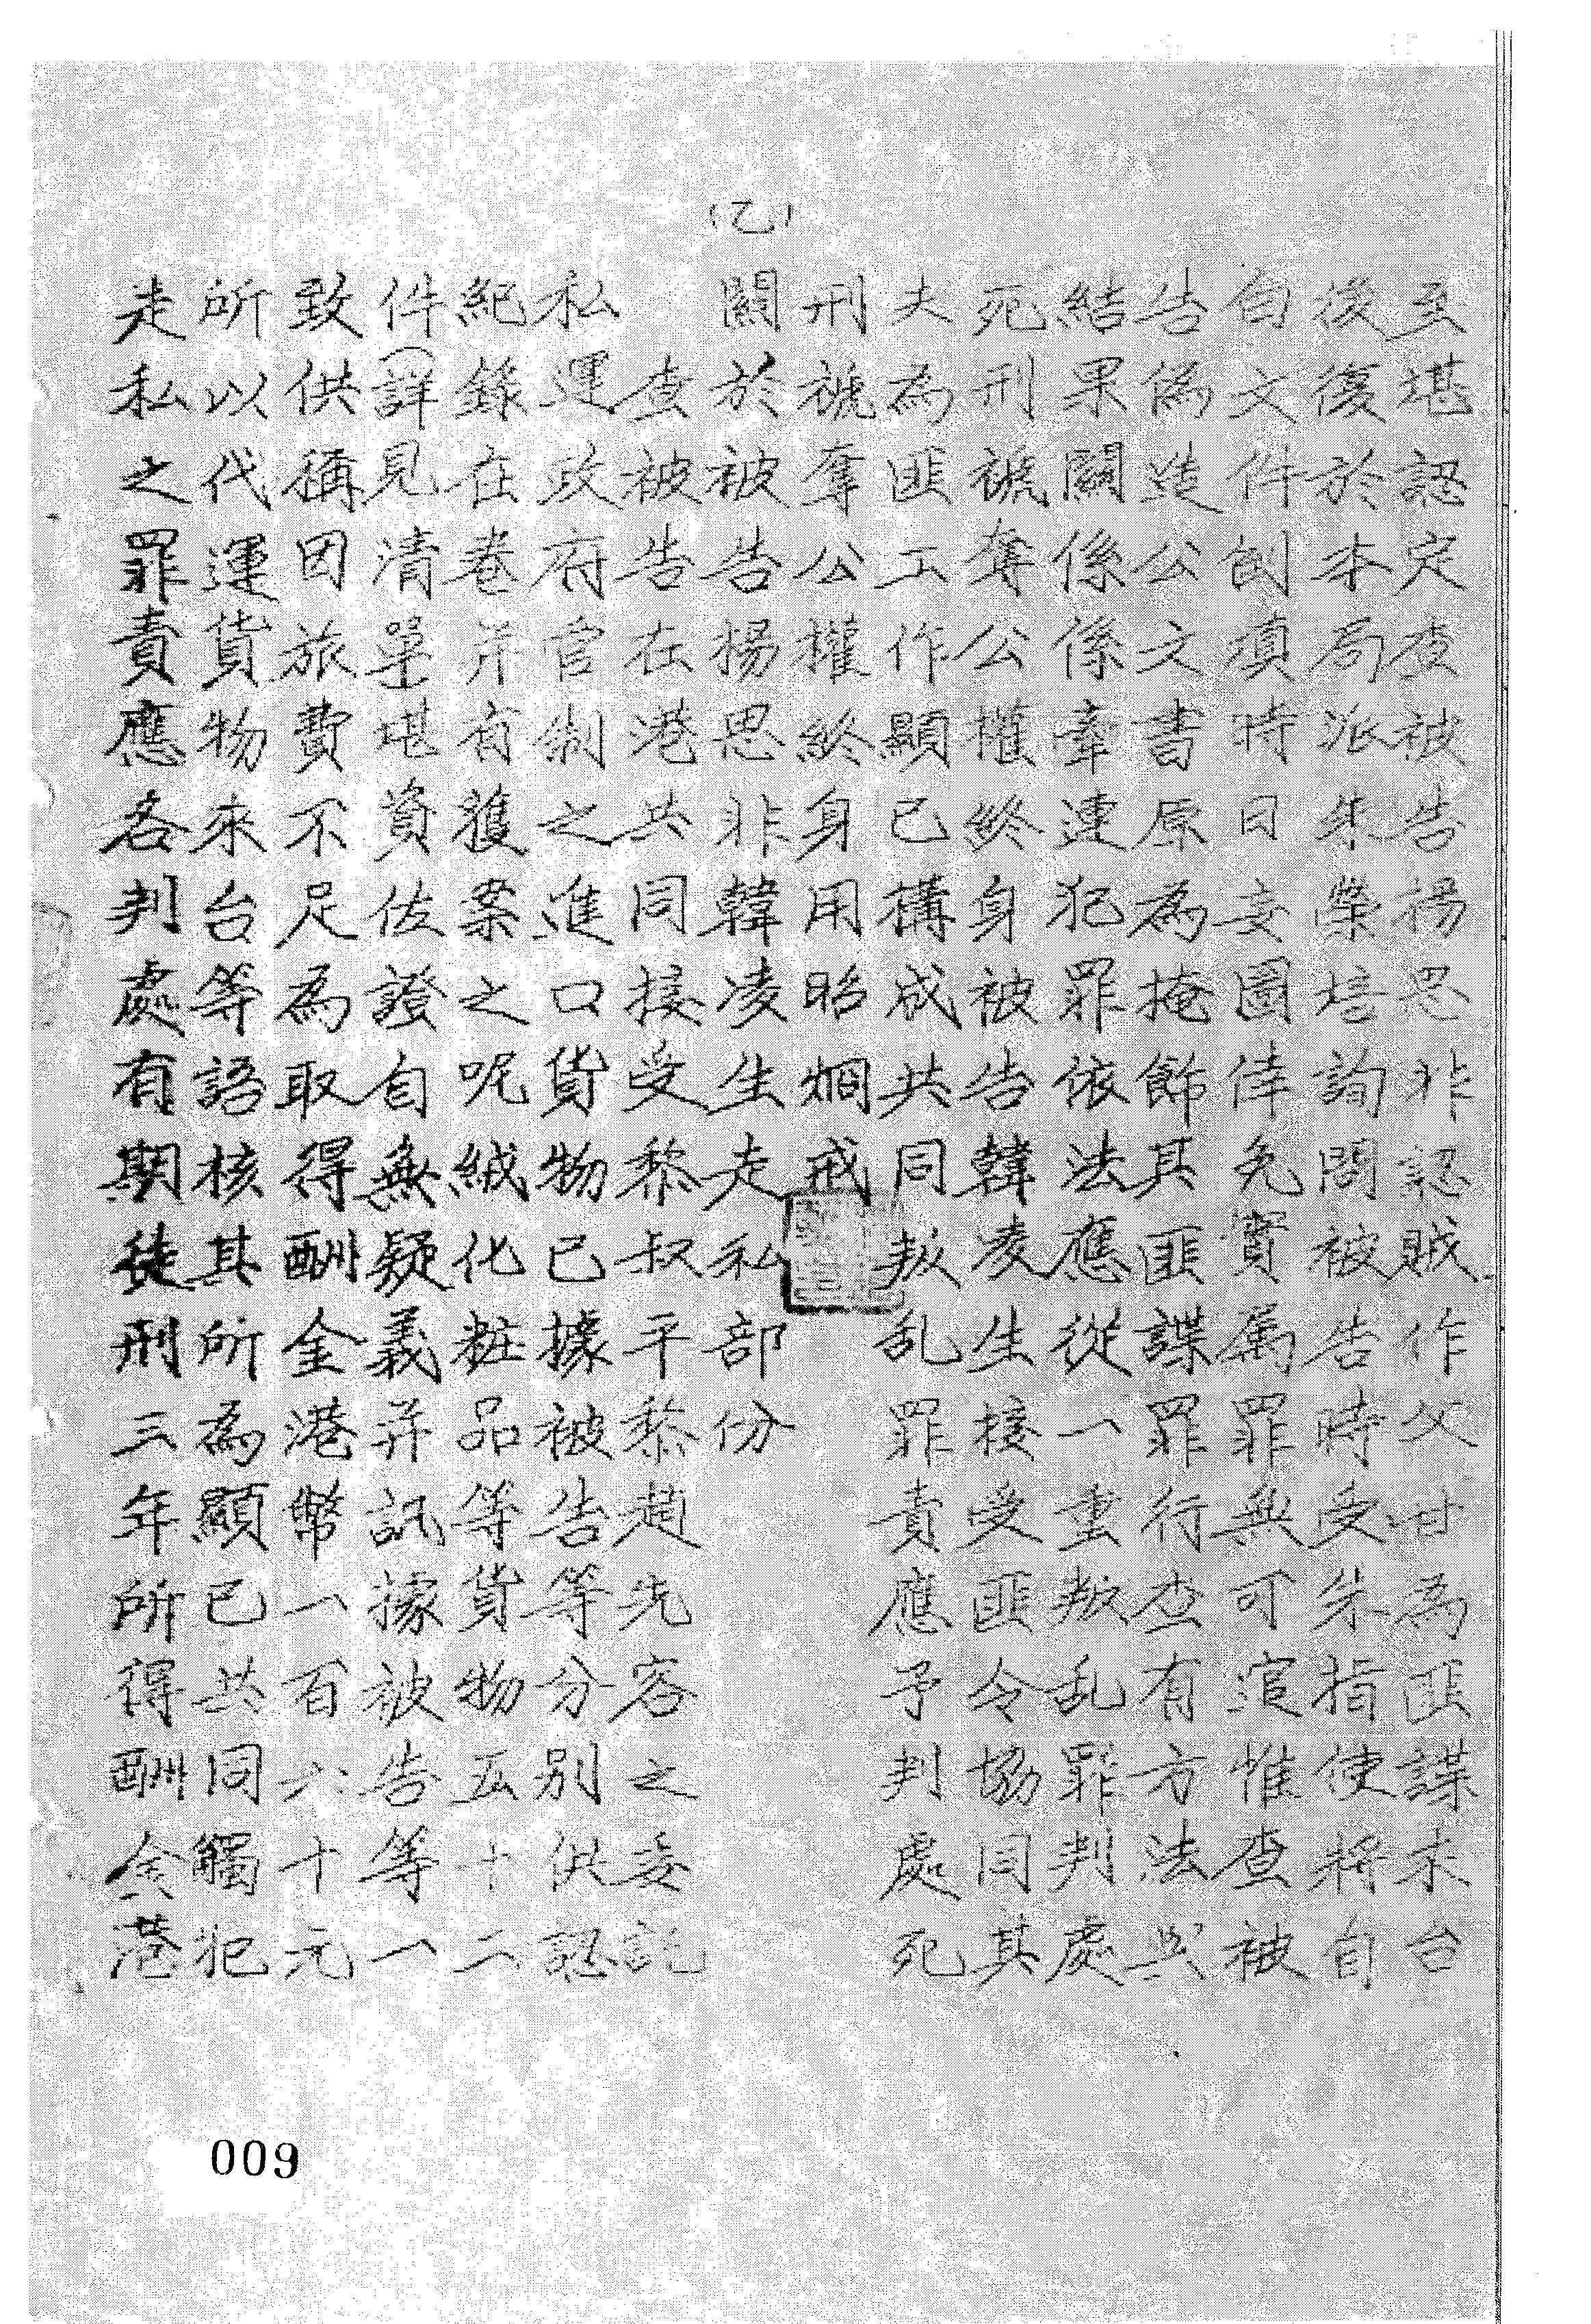 至堪認定查被告楊思非認賊作父甘為匪諜來台
後復於本局派朱榮培詢問被告時受朱指使將自
白文件倒填時日妄圖倖免實屬罪無可逭惟查被
告偽造公文書原為掩飾其匪諜罪行查有方法與
結果關係係牽連犯罪依法應從一重叛乱罪判處
死刑褫奪公權終身被告韓凌生接受匪令協同其
夫為匪工作顯已構成共同叛乱罪責應予判處死
刑褫奪公權終身用昭烱戒
(乙)關於被告楊思非韓凌生走私部份
查被告在港共同接受黎叔平黎趙先容之委託
私運政府官制之進口貨物已據被告等分別供認
紀錄在卷并有獲案之呢絨化粧品等貨物五十二
件(詳見清單)堪資佐證自無疑義并訊據被告等一
致供稱因旅費不足為取得酬金港幣一百六十元
所以代運貨物來台等語核其所為顯已共同觸犯
走私之罪責應各判處有期徒刑三年所得酬金港
009